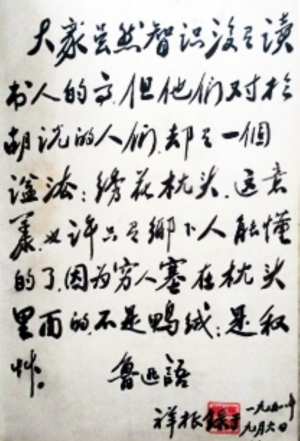 大家虽然智识没有读
书人的高,但他们对於
胡说的人们,却有一個
谥法:绣花枕头。这意
義,也许只有鄉下人能懂
的了,因为穷人塞在枕头
里面的,不是鸭绒:是稻
艸。 魯迅語
祥根錄于
九月六日